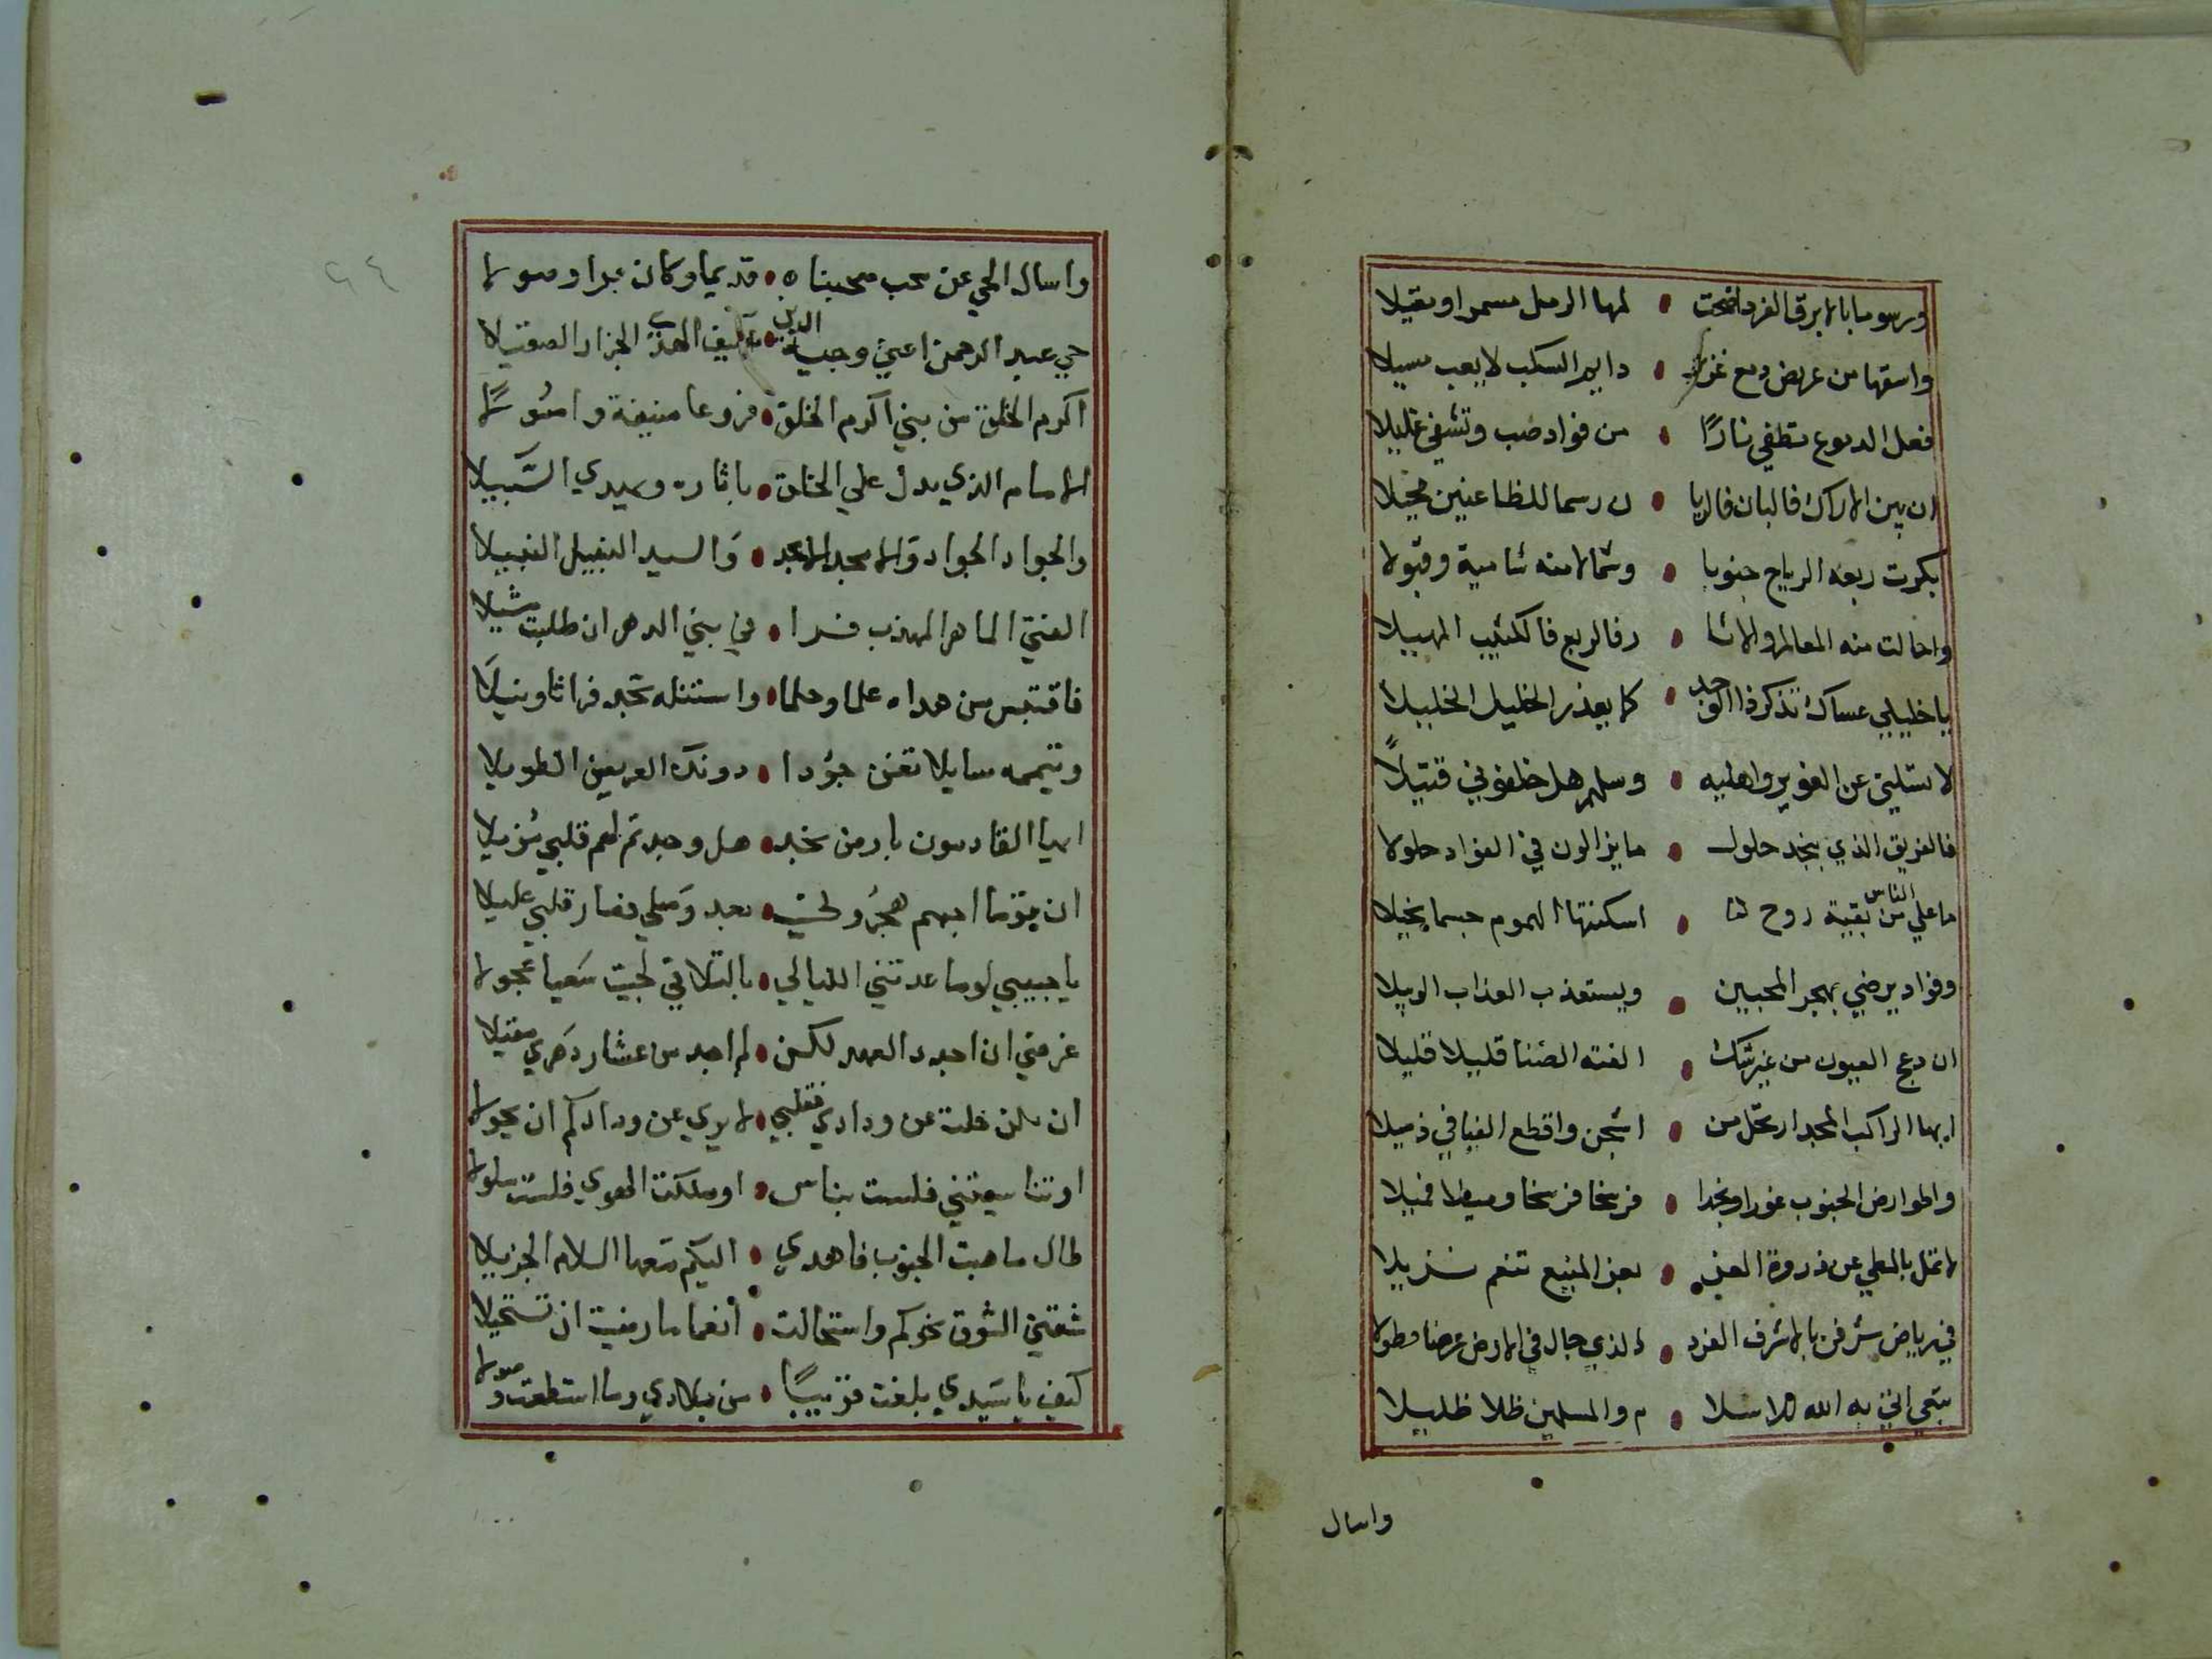 ورسوما بالابرق الفرد اضحت • لمها الرمل مسمرا ومقيلا
واسقها من عريض دمع غزير • دايم السكب لا يعب مسيلا
فعل الدموع تطفي نارًا • من فواد صب وتشفي غليلا
ان بين الاراك فالبان فالريا • ن رسما للظاعنين محيلا
بكرت ربعه الرياح جنوبا • وشمالا منه شامية وقبولا
واحالت منه المعالم والاثا • ر فالربع فالكثيب المهيلا
يا خليلي عساك تذكر ذا الوجد • كما يعذر الخليل الخليلا
لا تسليني عن الغوير واهليه • وسلهم هل خلفوني قتيلاً
فالفريق الذي بنجد حلول • ما يزالون في الفواد حلولا
ما علي الناس من بقية روح • اسكنتها الهموم جسما نحيلا
وفواد يرضي بهجر المحبين • ويستعذب العذاب الوبيلا
ان دعج العيون من غير شك • الفته الضنا قليلا قليلا
ايها الراكب المجد ارتحل من • واقطع الفيافي ذميلا
واطو ارض الجنوب غورا ونجدا • فرسخا فرسخا وميلا فميلا
لا تمل بالمطي عن ذروة العز • بعز المنيع تنعم نزيلا
في رياض شرفن بالاشرف الفرد • الذي جال في الارض عرضا وطولا
بقي الله للاسلا • م والمسلمين ظلا ظليلا
واسال
٩٤
واسال الحي عن محب محبناه • قديما وكان برا وصولا
حي عبد الرحمن اعني وجيه الدين • الجراز الصقيلا
اكرم الخلق من بني اكرم الخلق • فروعا منيفة واصُولاً
الامام الذي يدل علي الخلق • باثاره ويهدي السَّبيلا
والجواد الجواد والامجد الامجد • وَالسيد النبيل النبيلا
الفتي الماهر المهذب • في بني الدهر ان طلبت مثيلا
فاقتبس من هداه علما وحلما • واستنله تجد فراتا ونيلَا
وتيممه سايلا تغن جوُدا • دونك العريض الطويلا
ايها القادمون بارض نجد • هل وجدتم لهم قلبي نُزيلا
ان يوما اجبهم هجرُو • بعد وَصلي فصار قلبي عليلا
يا حبيبي لو ساعدتني الليالي • بالتلاقي لجيت سَعيا عجولا
غرضي ان اجدد العهد لكن • لم اجد من عثار دَهري مقيلا
ان تكن حلت عن ودادي فقلبي • لا يري عن ودادكم ان يحولا
او تناسيتني فلست بناس • او مللت الهوي فلست ملولا
طال ما هبت الجنوب فاهدي • اليكم مَعها السلام الجزيلا
شفني الشوق نحوكم واستحالت • أنعما ما رضيت ان تستحيلا
كيف يا سَيدي بلغت قريبًا • من بلادي وما استطعت وصولا